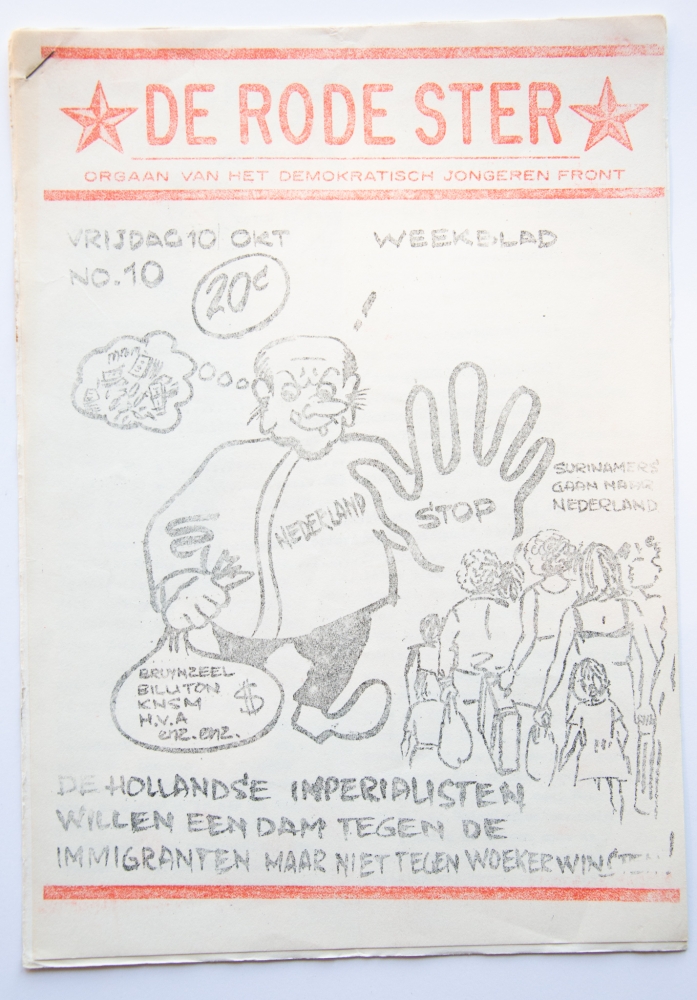 DE RODE STER
ORGAAN VAN HET DEMOKRATISCH JONGEREN FRONT
VRIJDAG 10 OKT
WEEKBLAD
NO. 10
20¢
STOP
NEDERLAND
SURINAMERS
GAAN NAAR
NEDERLAND
BRUYNZEEL
BILLITON
KNSM
H.V.A
enz. enz.
$
DE HOLLANDSE IMPERIALISTEN
WILLEN EEN DAM TEGEN DE
IMMIGRANTEN MAAR NIET TEGEN WOEKERWINSTEN!